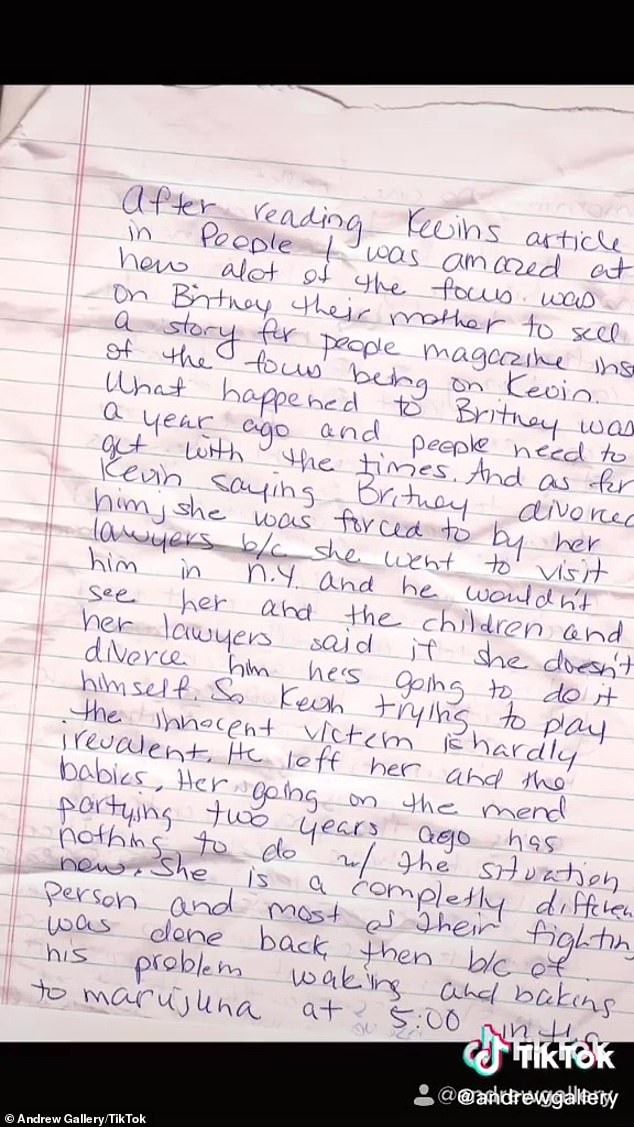 After reading Kevins article
in People I was amazed at
how alot of the focus was
on Britney their mother to sell
a story for people magazine ins
of the focus being on Kevin.
What happened to Britney was
a year ago and people need to
get with the times. And as for
Kevin saying Britney divorced
him, she was forced to by her
lawyers b/c she went to visit
him in N.Y. and he wouldn't
see her and the children and
her lawyers said if she doesn't
divorce him he's going to do it
himself. So Kevin trying to play
the innocent victem is hardly
irevalent. He left her and the
babies. Her going on the mend
partying two years ago has
nothing to do w/ the situation
now. She is a completly differen
person and most of their fightin
was done back then b/c of
his problem waking and baking
to marujuna at 5:00 in the
TikTok
@andrewgallery
© Andrew Gallery/TikTok